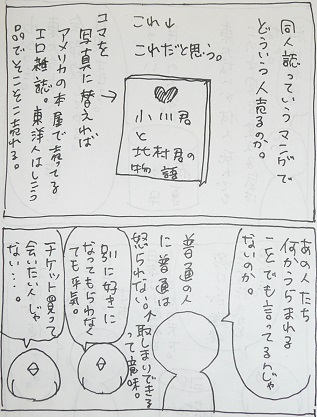 同人誌っていうマンガで
どういう人売るのか。
これ↓
これだと思う。
小川君
と
北村君の
物語
コマを
写真に替えれば
アメリカの本屋で売ってる
エロ雑誌。東洋人はしこう
品でそこそこ売れる。
あの人たち
何かうらまれる
ことでも言ってるんじゃ
ないのか。
普通の人
に普通は
怒られない。
取しまりできる
って意味。
別に好きに
なってもらわなく
ても平気。
チケット買って
会いたい人じゃ
ない…。